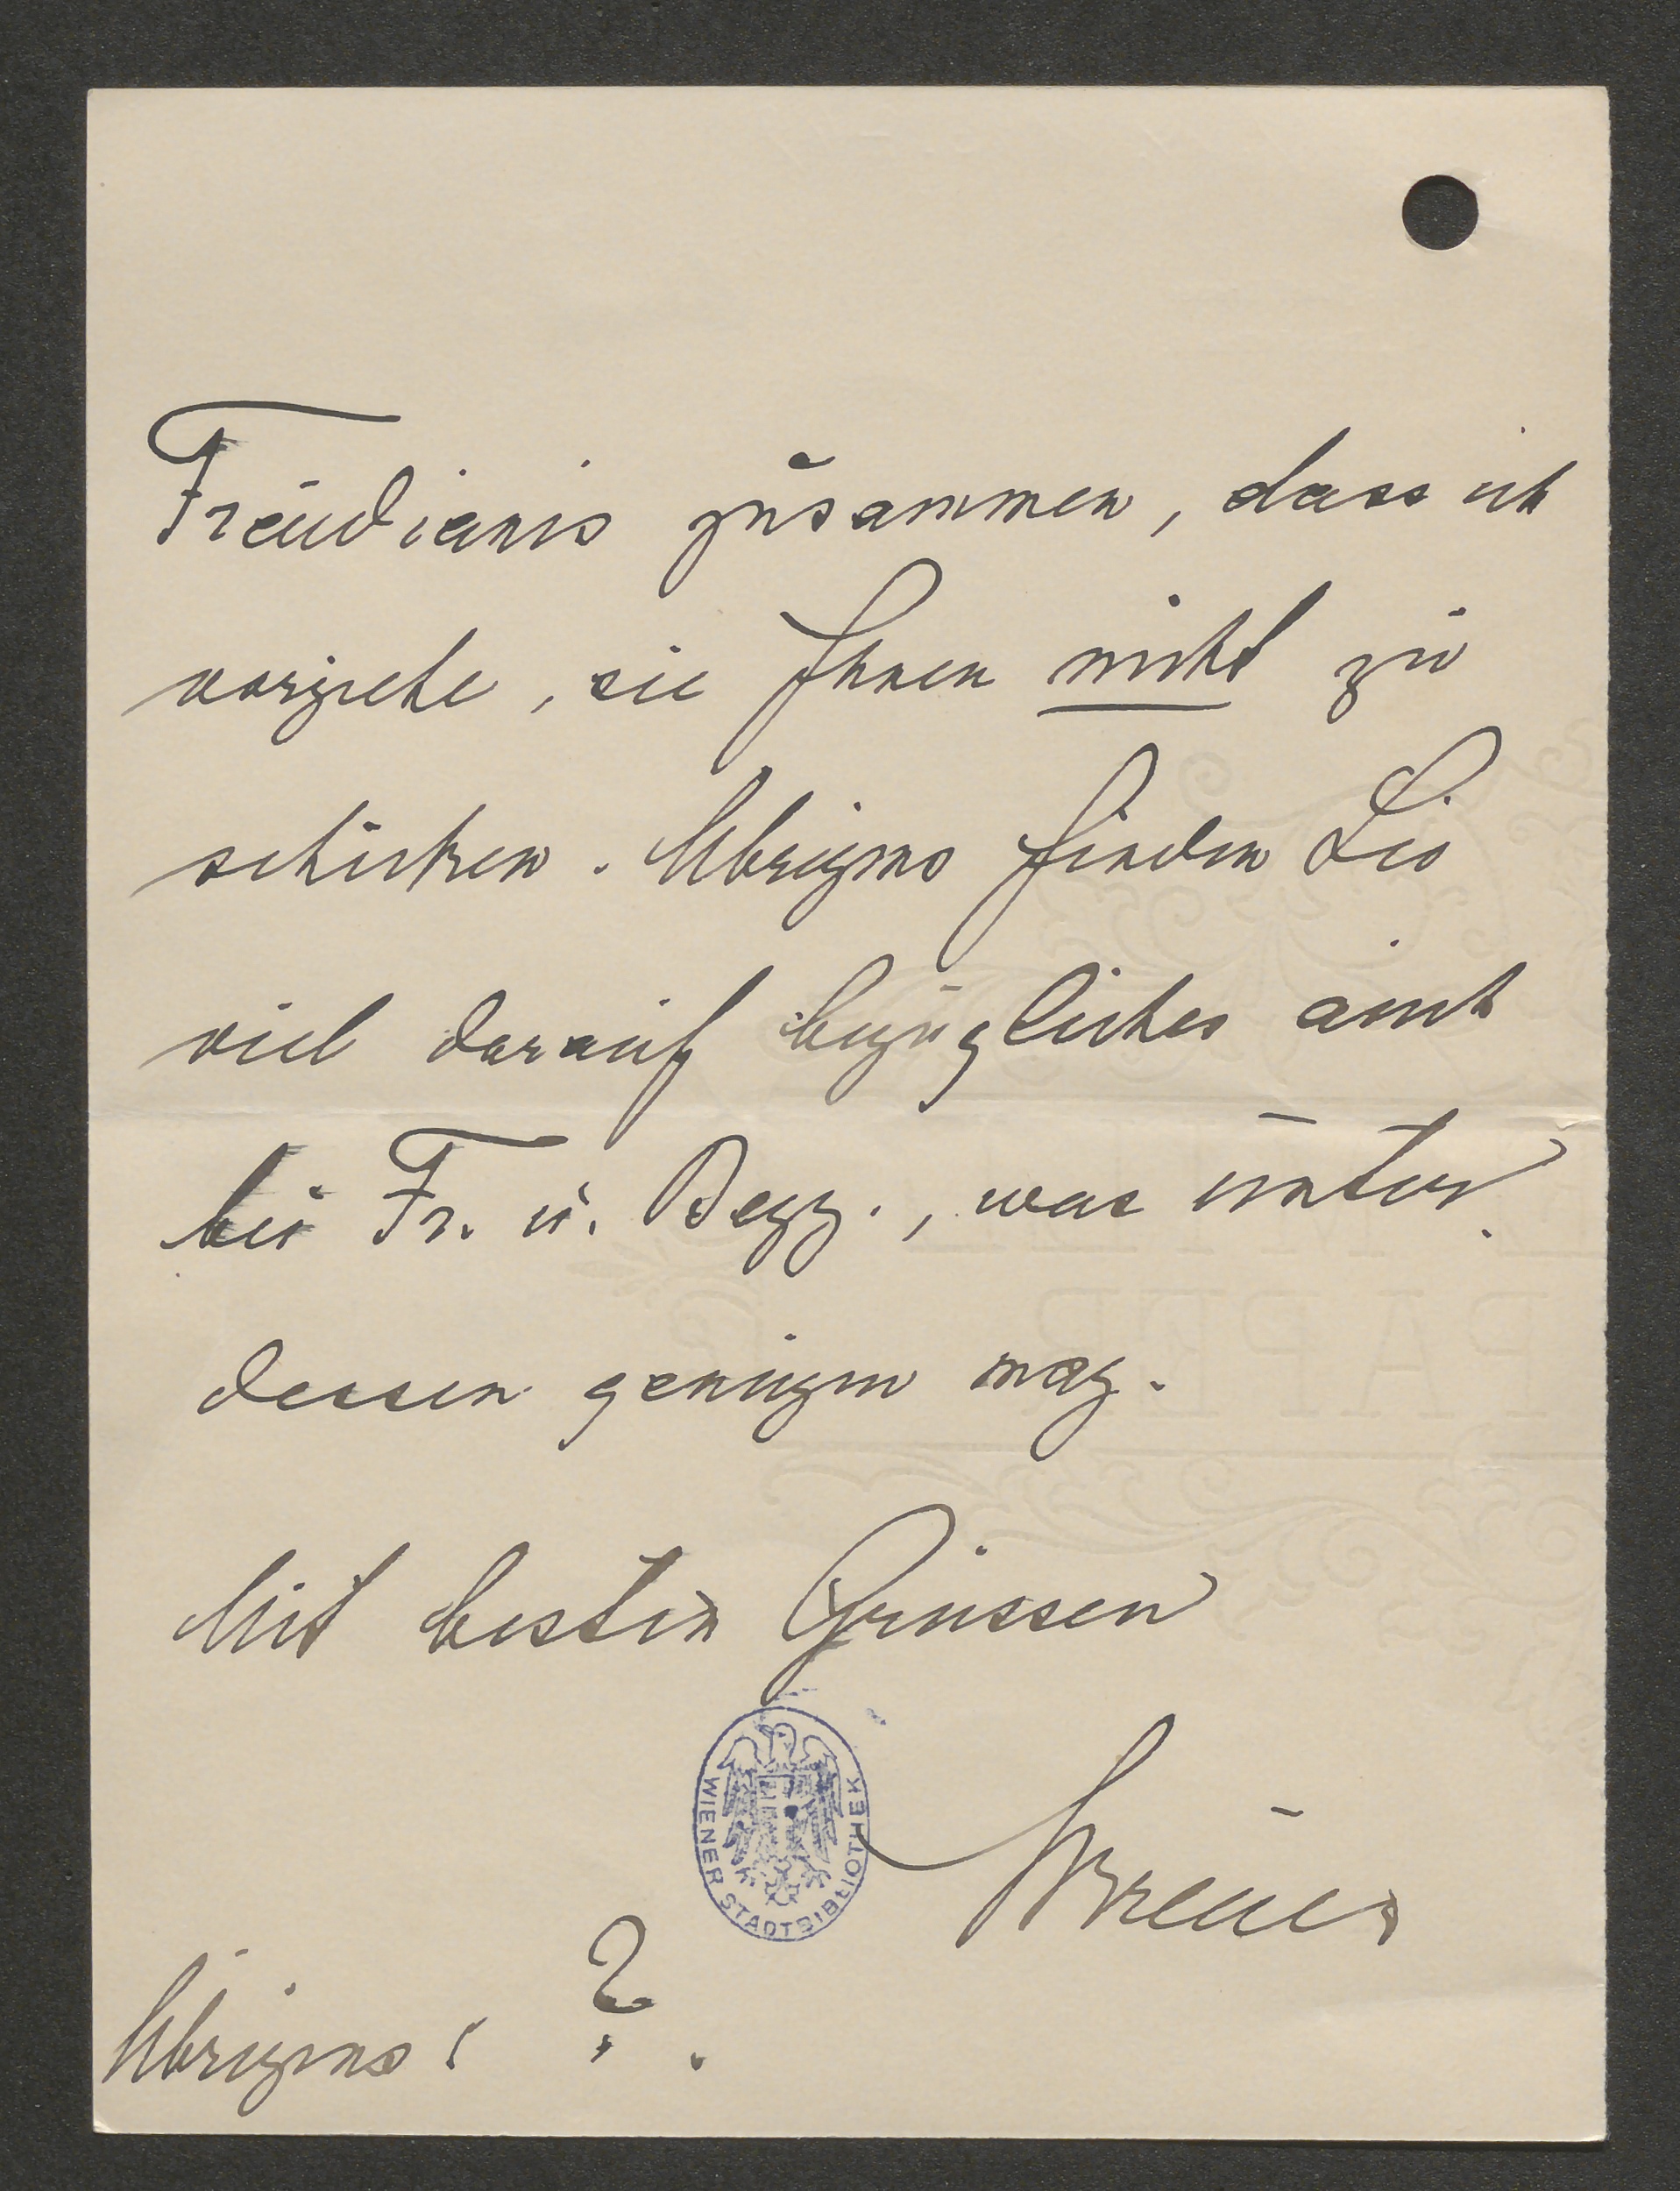 Freudianis zusammen, dass ich
vorziehe, sie Ihnen nicht zu
schicken. Übrigens finden Sie
viel darauf bezügliches auch
bei Fr. u. Bezz., was unter
dessen genügen mag.
Mit besten Grüssen
WIENER STADTBIBLIOTHEK
Übrigens: ?
PAPER